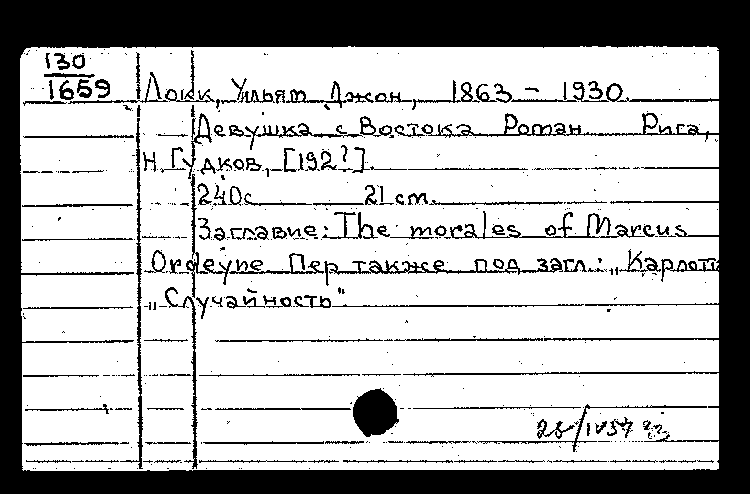 130
1659
Локк, Уильям Джон, 1863 – 1930.
Девушка с Востока Роман Рига,
Н. Гудков, [192?].
240с 21 cm.
Заглавие: The morales of Marcus
Ordeyne Пер также под загл.: „Карлотта
„Случайность"